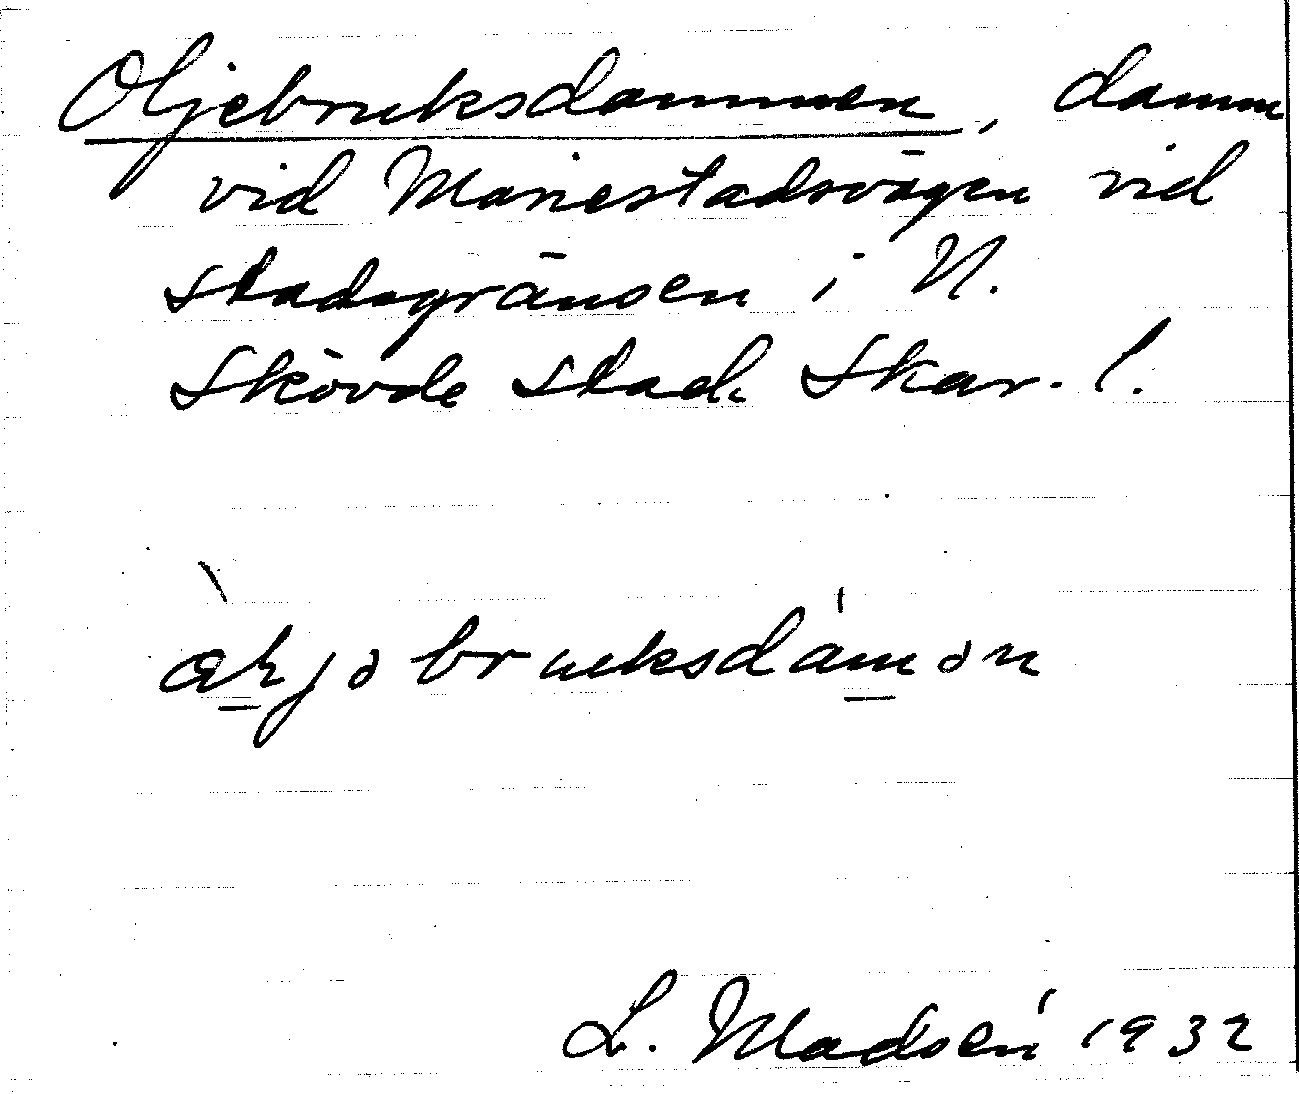 Oljebruksdammen, damm
vid Mariestadsvägen vid
stadsgränsen i N.
Skövde stad. Skar. l.
L. Madsén 1932